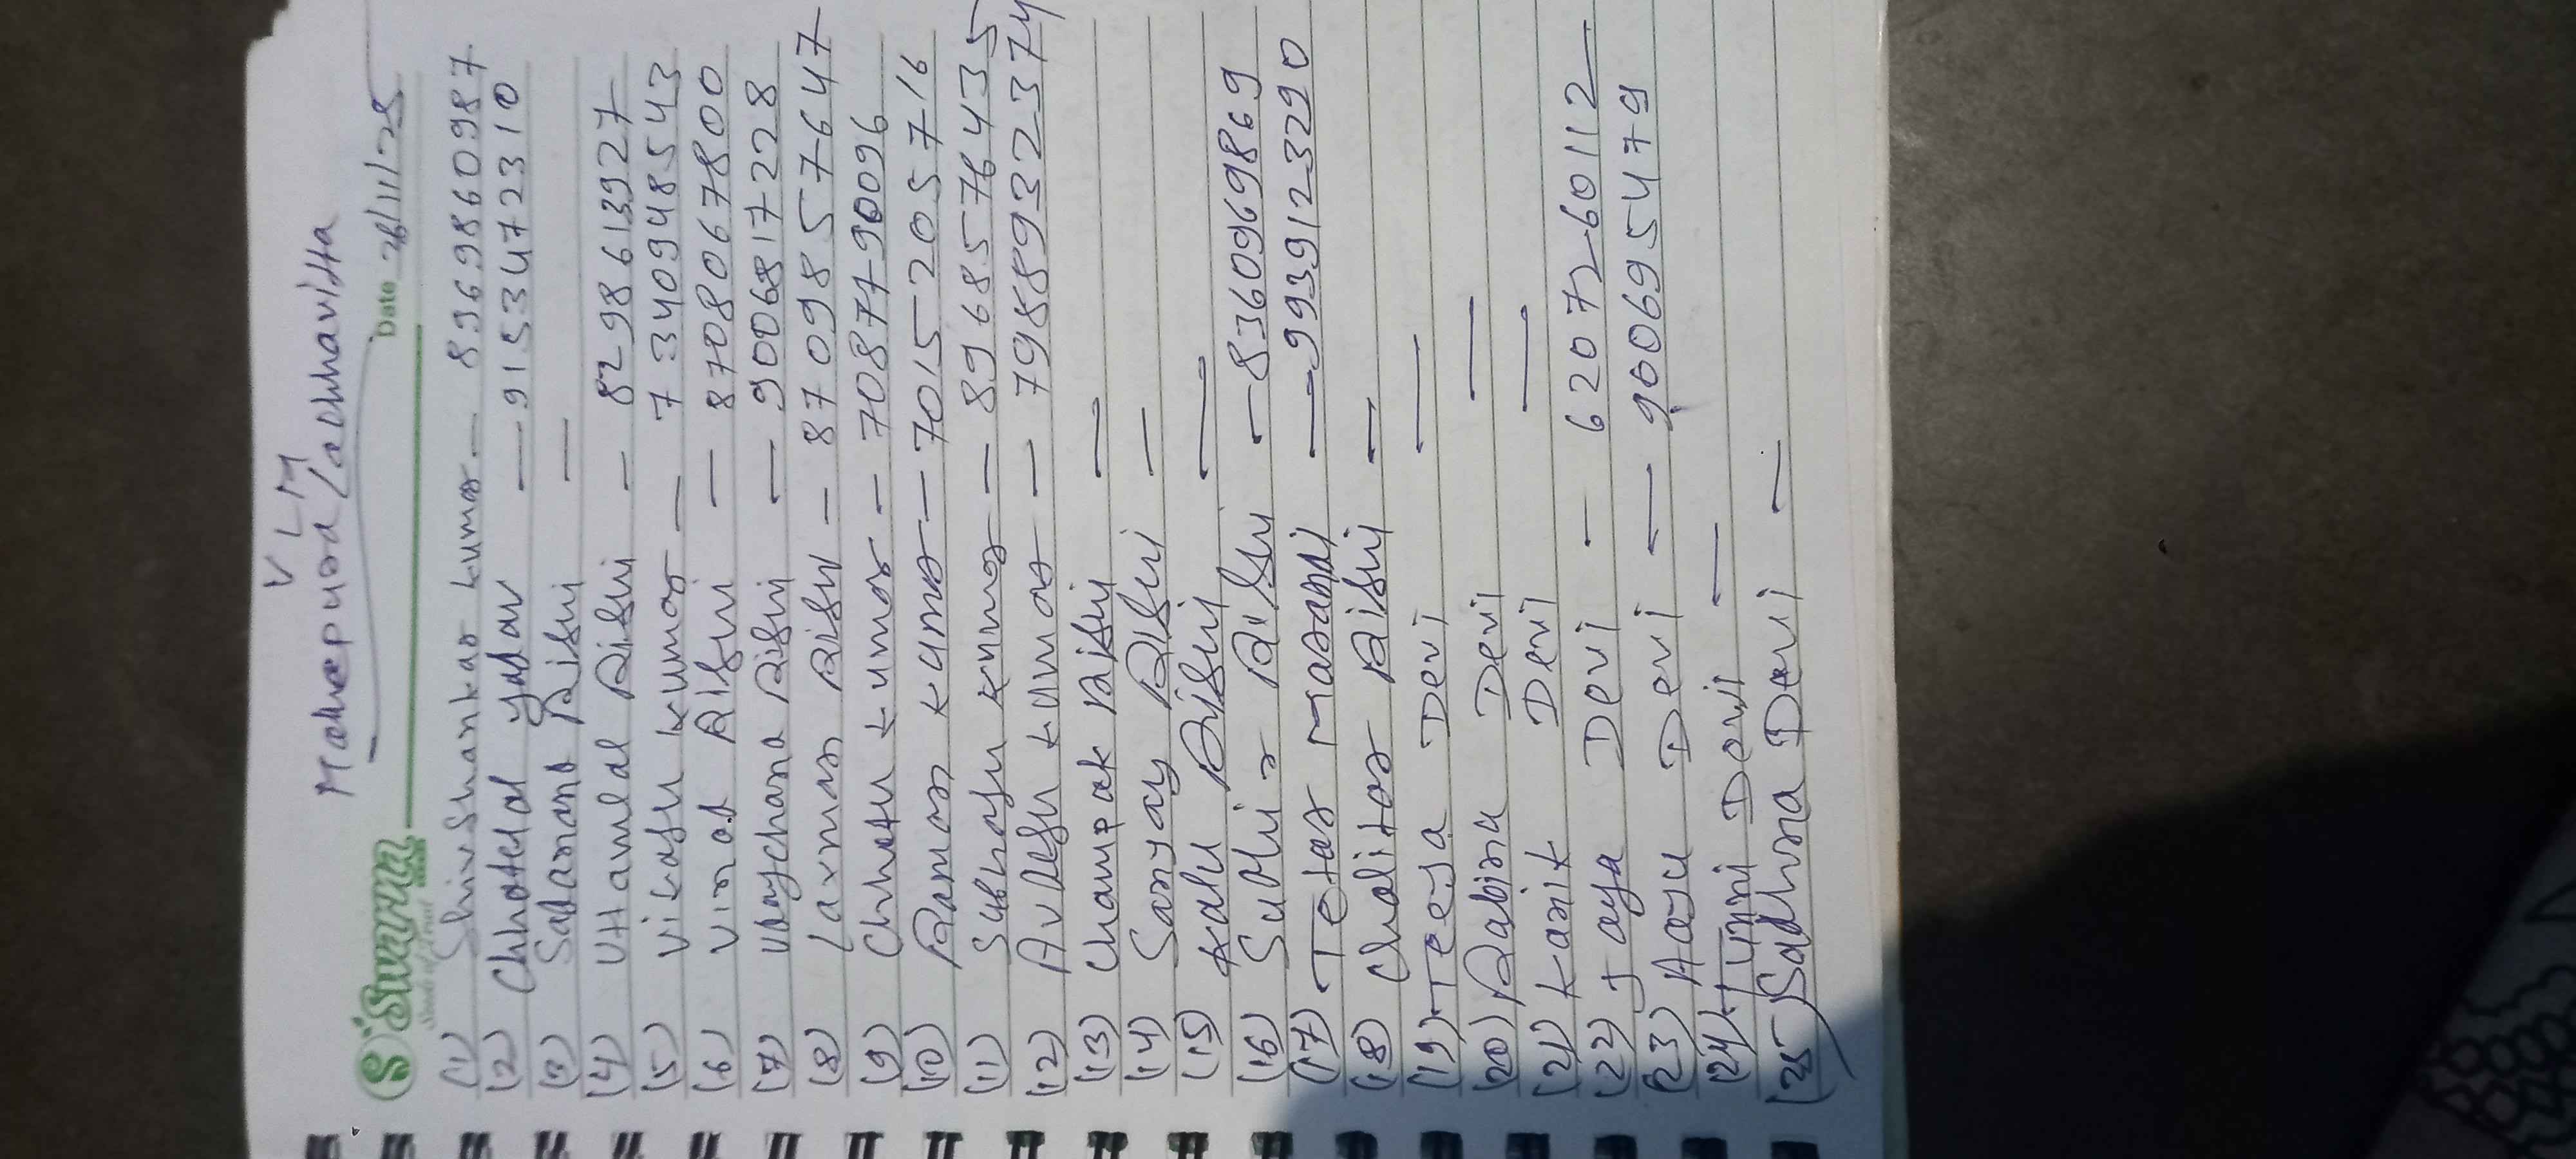 VLM
Madhepura/achhavitta
Swarna
Seeds of Trust
Date 26/11/25
(1) Shiv Shankar kumar — 8969860987
(2) Chhotelal yadav — 9153472310
(3) Sadanand Rishi —
(4) Uttamlal Rishi — 8298613927
(5) Vikash kumar — 7340948543
(6) Vinod Rishi — 8708067800
(7) Udaychand Rishi — 9006817228
(8) Laxman Rishi — 8709857647
(9) Chhotu kumar — 7087790096
(10) Raman kumar — 7015205716
(11) Subhash kumar — 8968576435
(12) Avdesh kumar — 7988932374
(13) Champak Rishi —
(14) Sanjay Rishi —
(15) Kalu Rishi —
(16) Sudhir Rishi — 8360969869
(17) Tetar Masand — 9939123290
(18) Chalitar Rishi —
(19) Teeja Devi —
(20) Rabina Devi —
(21) Devi —
(22) Jaya Devi — 6207260112
(23) Devi — 9006954479
(24) Tunni Devi —
(25) Sadhna Devi —